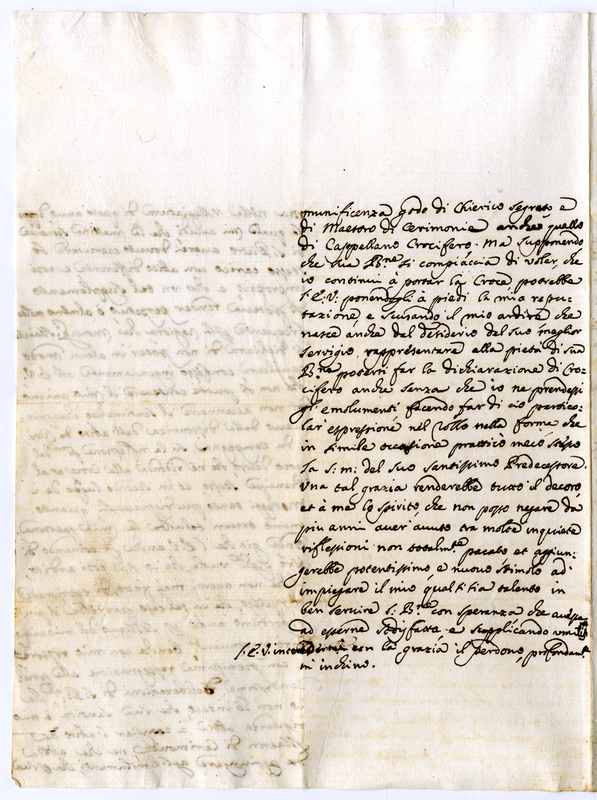 munificenza godo di Chierico Segreto e
di Maestro di Cerimonie anche quello
di Cappellano Crocifero. Ma supponendo
che Sua B.ne si compiaccia di voler, che
io continui à portar la Croce, potrebbe
S.E.V. ponendogli à piedi la mia repu-
tazione, e scusando il mio ardire che
nasce anche dal desiderio del suo meglior
servigio, rappresentare alla pietà di Sua
B.ne potersi far la dichiarazione di Cro-
cifero anche senza che io ne prendessi
gl'emolumenti facendo far di ciò partico-
lar espressione nel Rollo nella forma che
in simile occasione pratticò meco stesso
la s: m: del suo Santissimo Predecessore.
Una tal grazia renderebbe tutto il decoro,
et à me lo spirito, che non posso negare da
più anni aver avuto tra molte inquiete
riflessioni non totalm.te pacato et aggiun-
gerebbe potentissimo, e nuovo stimolo ad
impiegare il mio qualsisia talento in
ben servire S: B.ne con speranza che
ad esserne sodisfatta, e supplicando
S.E.V. con la grazia il perdono, profondam.te
m'inchino.